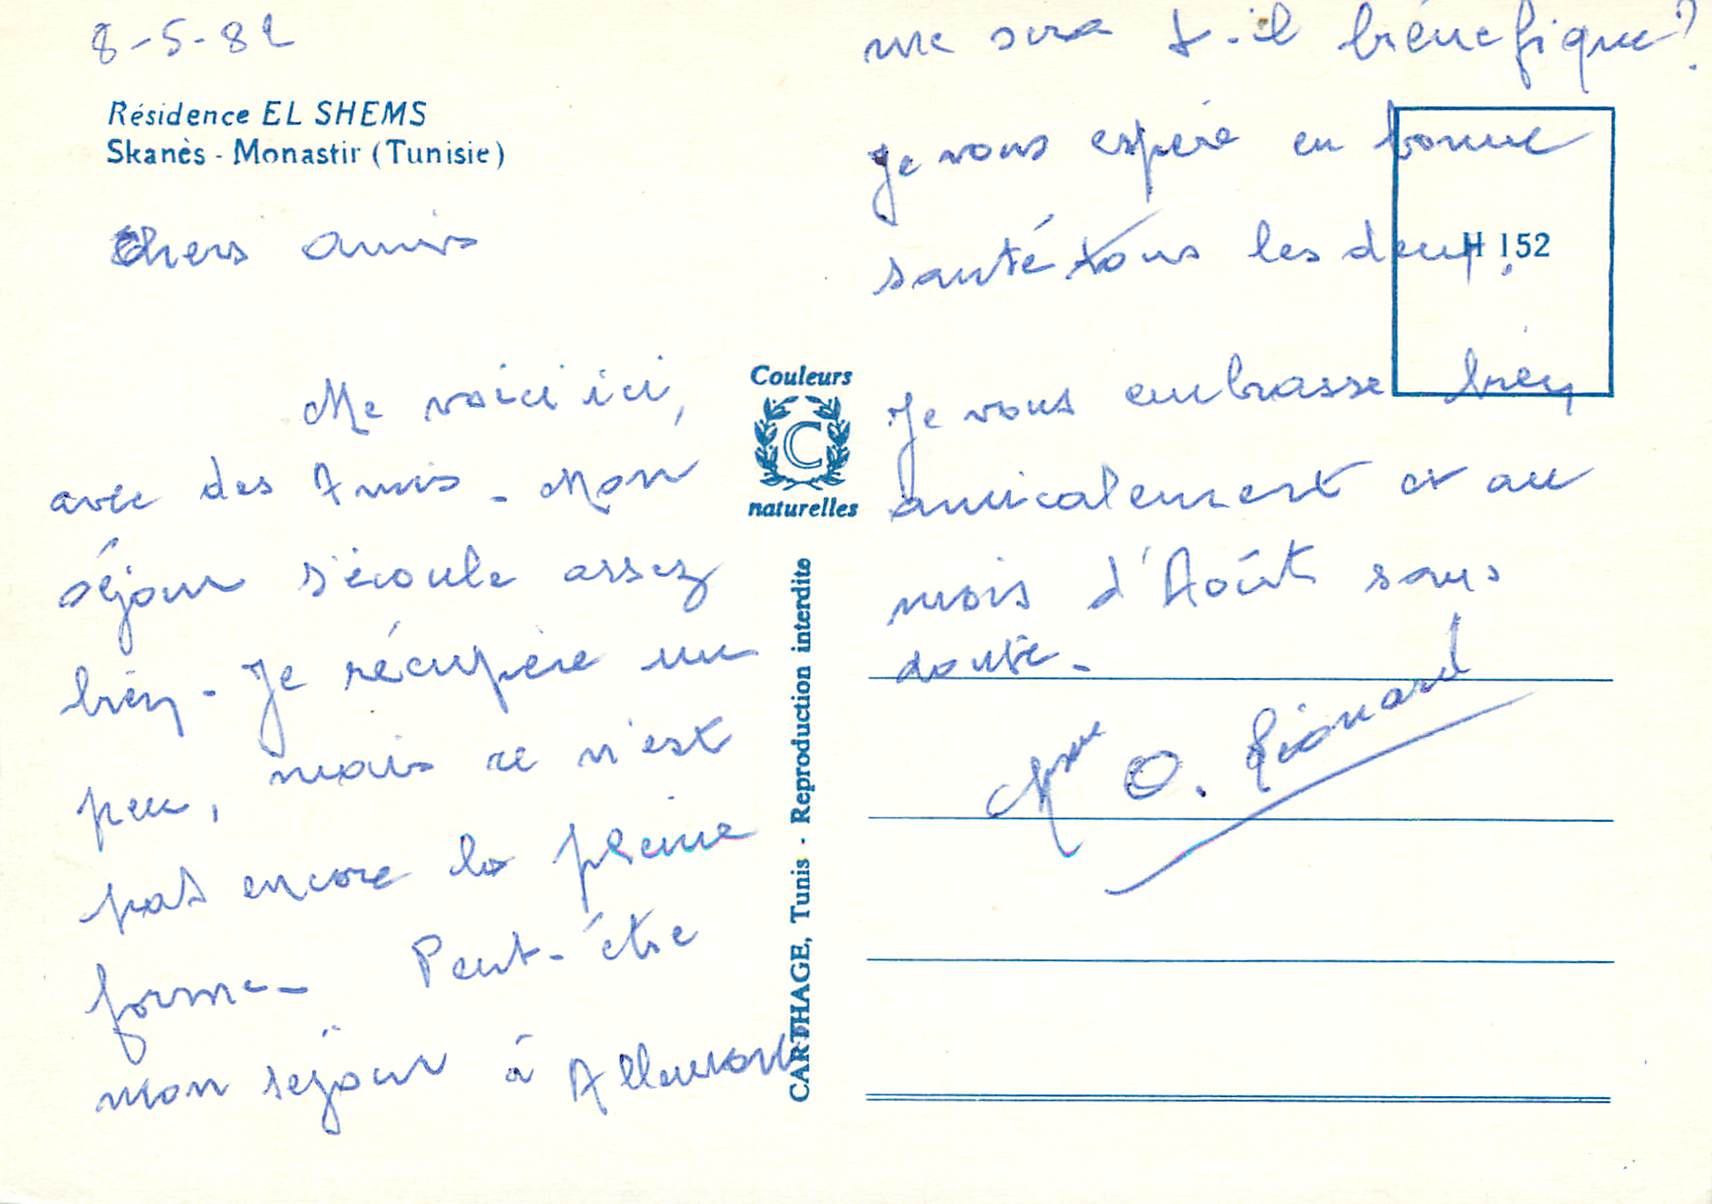 8-5-82
Résidence EL SHEMS
Skanès - Monastir (Tunisie)
Chers amis
Me voici ici,
avec des Amis - Mon
séjour s'écoule assez
bien - Je récupère un
peu, mais ce n'est
pas encore la pleine
forme - Peut-être
mon séjour à Allemont
me sera t-il bénéfique?
Je vous espère en bonne
santé tous les deux.
Je vous embrasse bien
amicalement et au
mois d'Août sans
doute -
Mme O.
H 152
Couleurs
C
naturelles
CARTHAGE, Tunis - Reproduction interdite